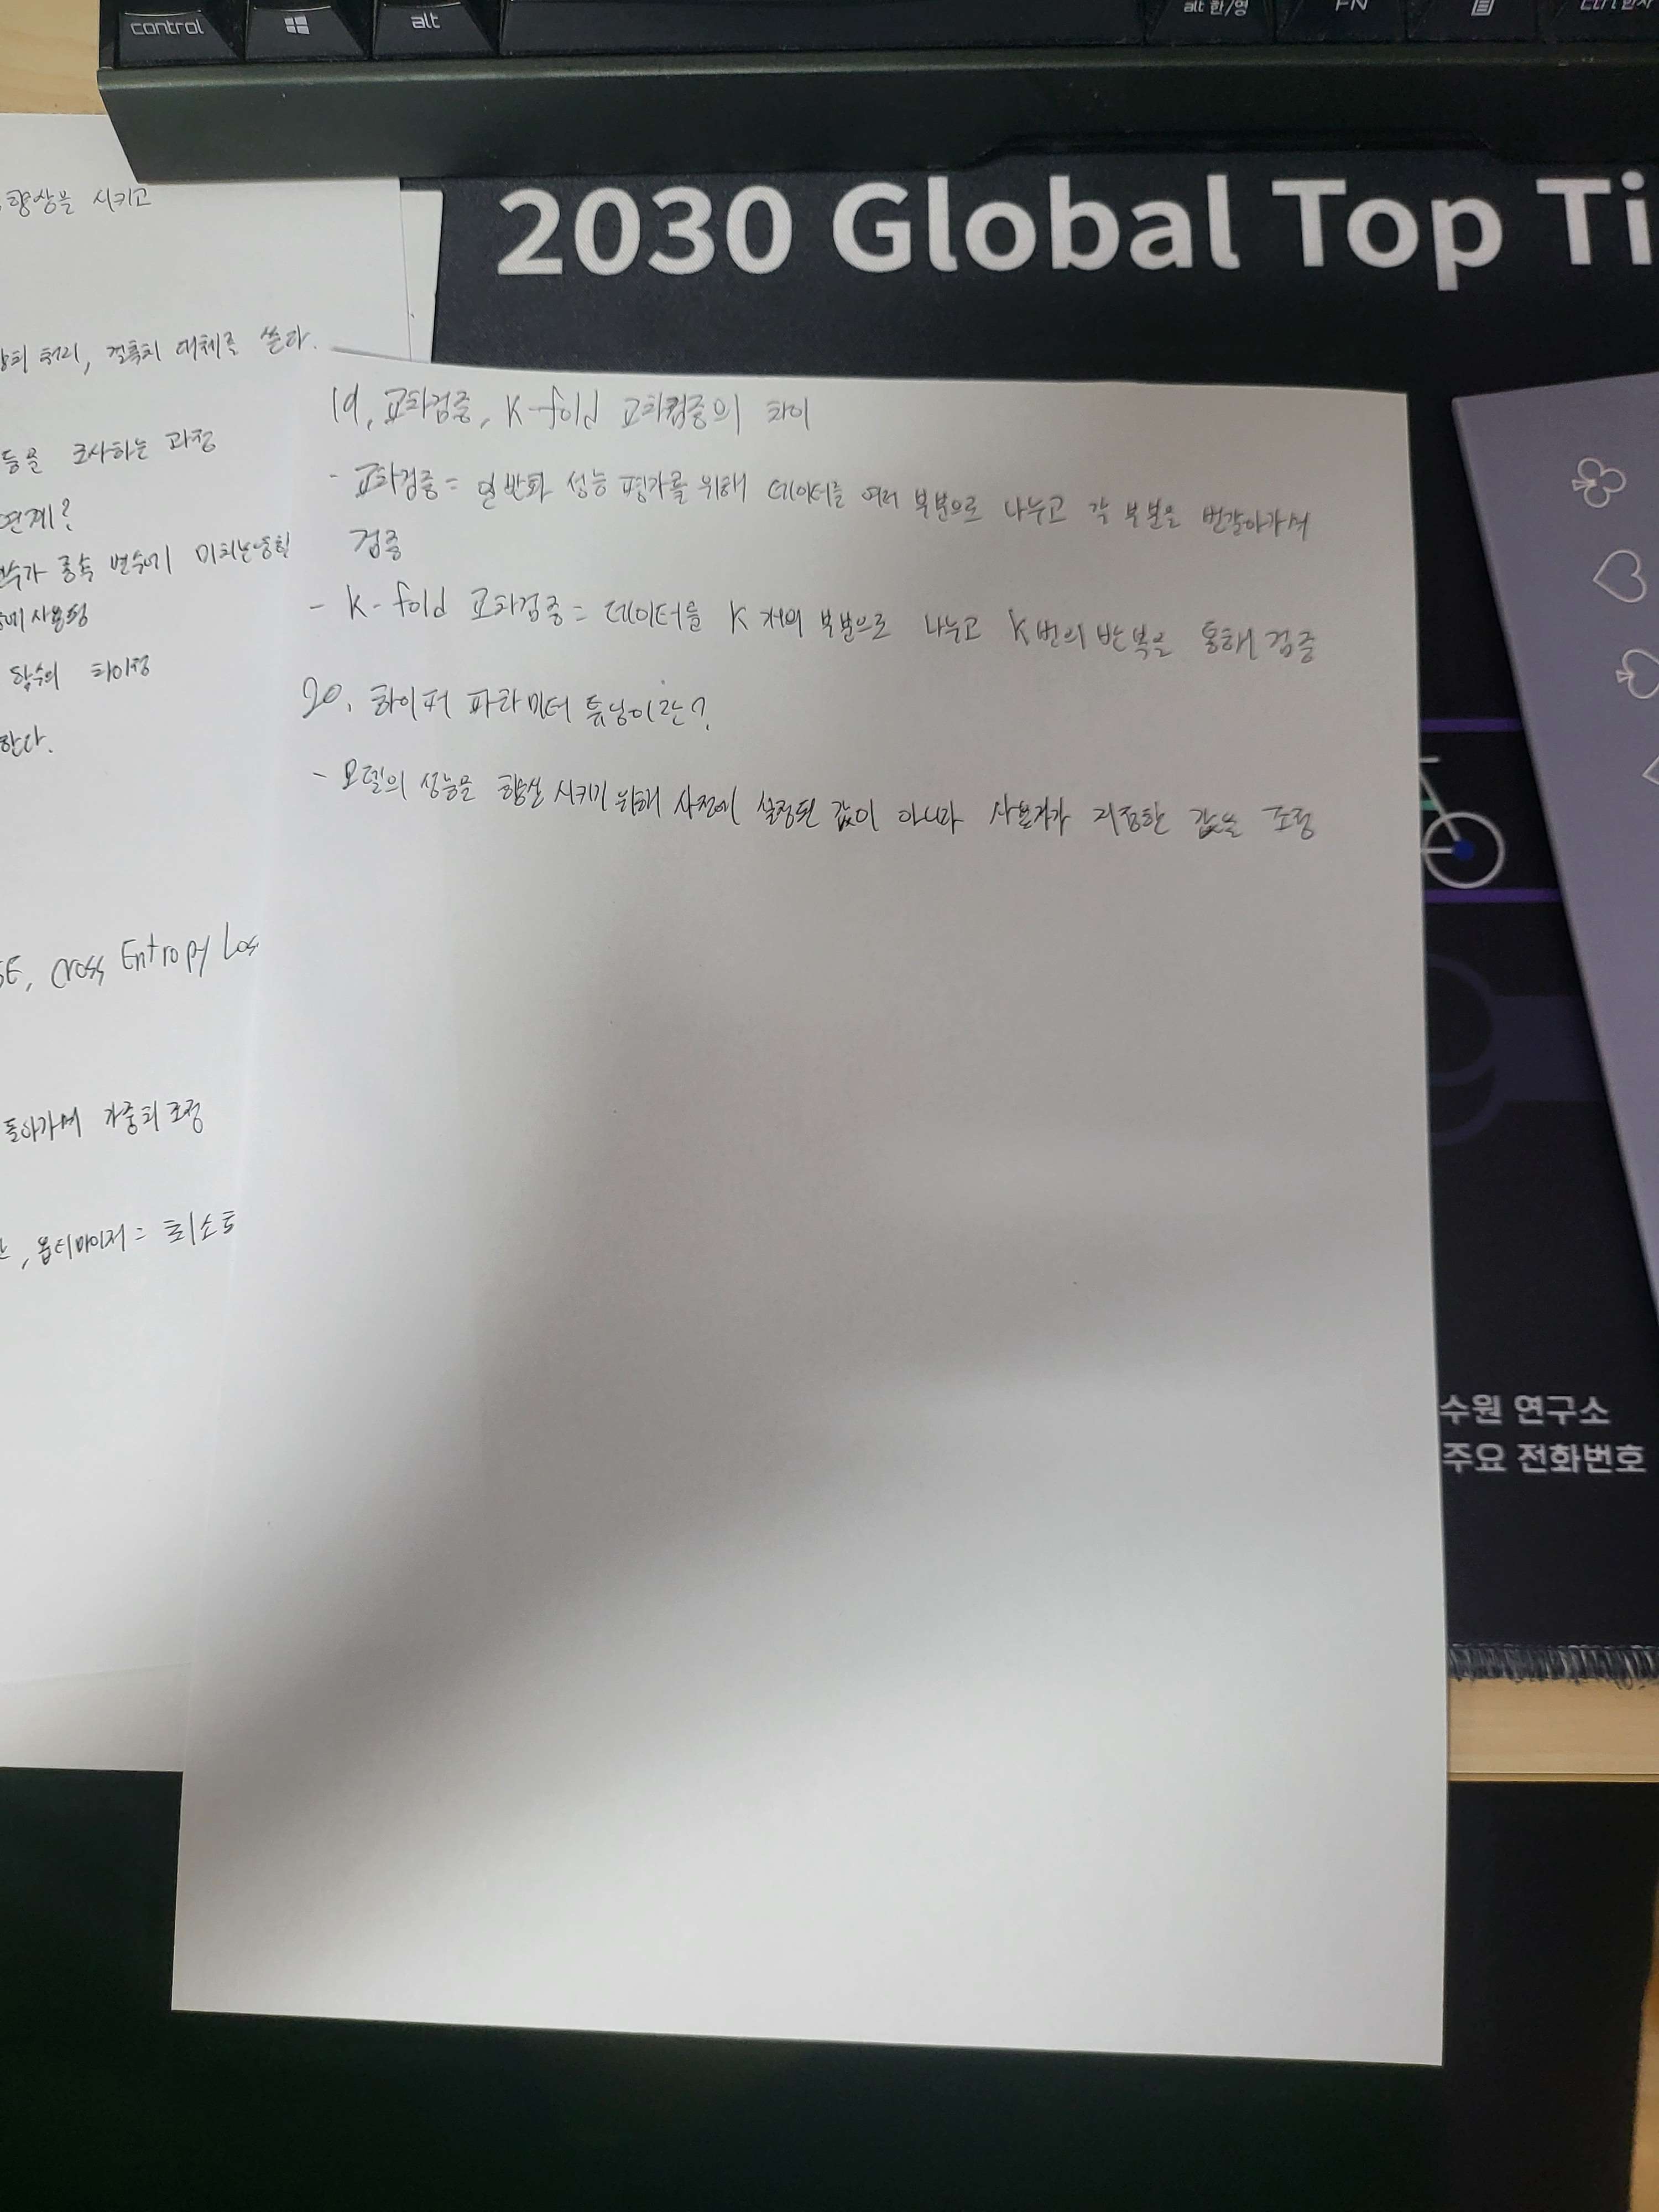 control
alt
alt 한/영
FN
2030 Global Top Ti
향상을 시키고
처리, 결측치 대체로 쓴다.
등을 조사하는 과정
변수가 종속 변수에 미치는 영향
함수의 차이점
한다.
SE, Cross Entropy Los
돌아가며 가중치 조정
, 옵티마이저 = 최소화
19, 교차검증, K-fold 교차검증의 차이
- 교차검증 = 일반화 성능 평가를 위해 데이터를 여러 부분으로 나누고 각 부분을 번갈아가며
검증
- K-fold 교차검증 = 데이터를 K개의 부분으로 나누고 K번의 반복을 통해 검증
20, 하이퍼 파라미터 튜닝이란?
- 모델의 성능을 향상 시키기 위해 사전에 설정된 값이 아니라 사용자가 지정한 값을 조정
수원 연구소
주요 전화번호